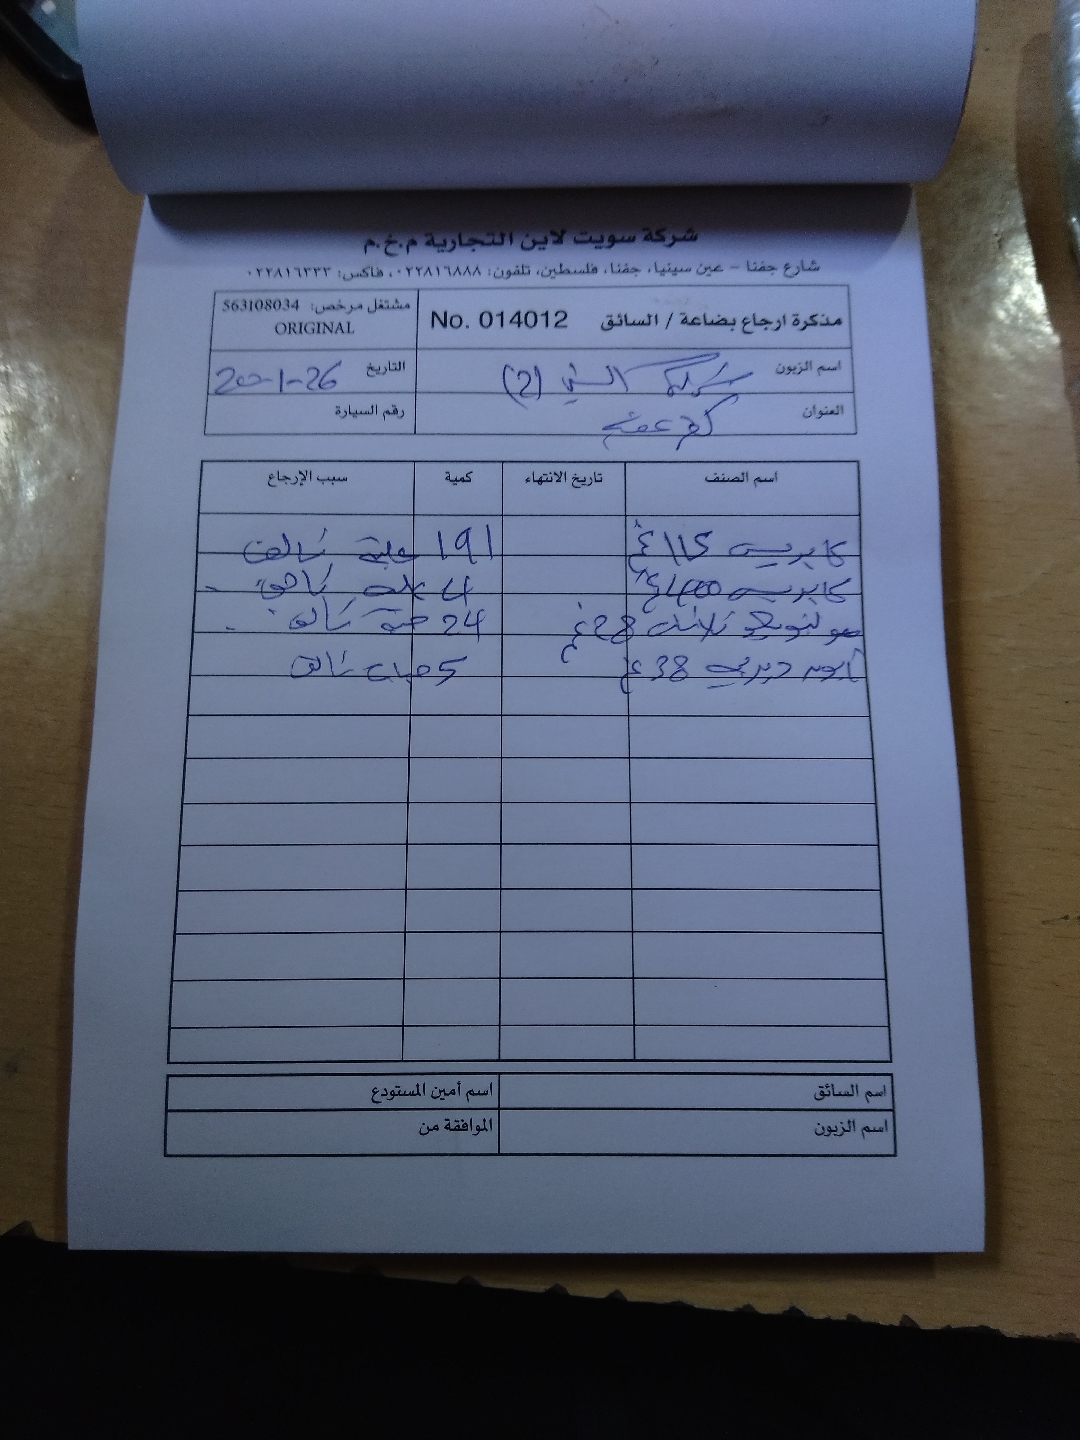 شركة سويت لاين التجارية م.خ.م
شارع جفنا - عين سينيا، جفنا، فلسطين، تلفون: ٠٢٢٨١٦٨٨٨، فاكس: ٠٢٢٨١٦٣٣٣
مذكرة ارجاع بضاعة / السائق No. 014012 مشتغل مرخص: 563108034
ORIGINAL
اسم الزبون (2) التاريخ 20-1-26
العنوان كفر عقب رقم السيارة
اسم الصنف تاريخ الانتهاء كمية سبب الإرجاع
كابريس 115غ 191 علبة تالف
كابريس 400غ 4 علب تالف
28غ 24 حبة تالف
38غ 5 حبات تالف
اسم السائق اسم أمين المستودع
اسم الزبون الموافقة من